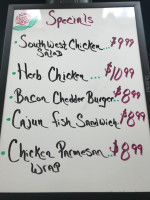 Specials
• Southwest Chicken Salad ... $9.99
• Herb Chicken ... $10.99
• Bacon Chedder Burger... $8.99
• Cajun fish Sandwich $8.99
• Chicken Parmesan Wrap ... $8.99